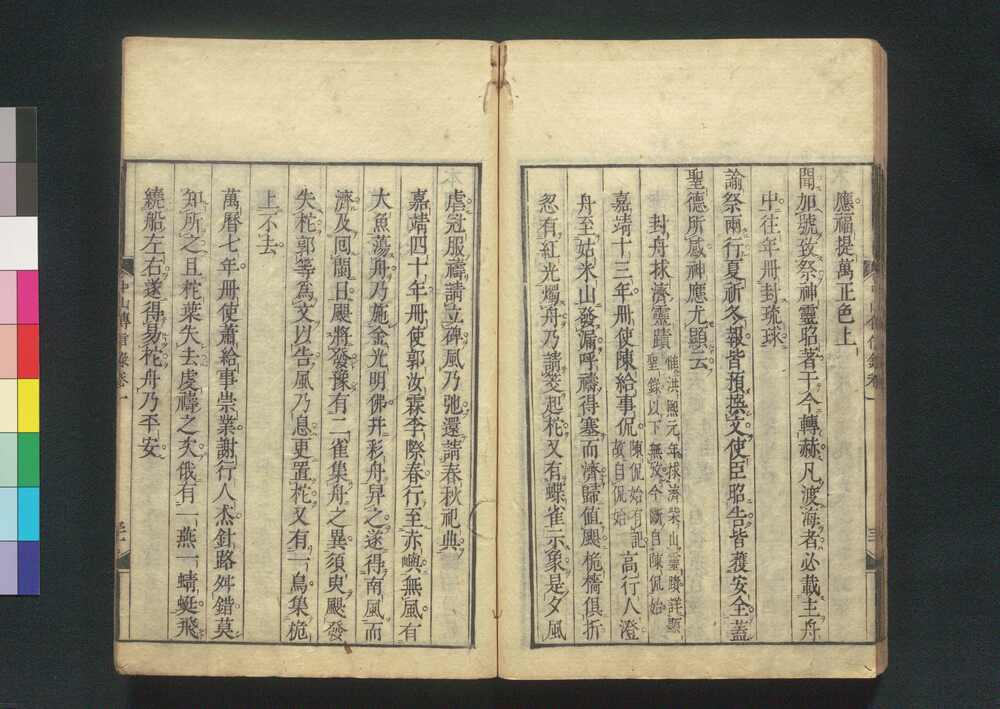 應福提萬正色上
聞加號致祭神靈昭著于今轉赫凡渡海者必載主舟
中往年冊封琉球
諭祭兩行夏祈冬報皆預撰文使臣昭告皆獲安全蓋
聖德所感神應尤顯云
封舟捄濟靈蹟 惟洪熙元年捄濟柴山靈蹟詳顯
聖錄以下無攷今斷自陳侃始
嘉靖十三年冊使陳給事侃 陳侃始有記
故自侃始 高行人澄
舟至姑米山發漏呼禱得塞而濟歸值颶桅檣俱折
忽有紅光燭舟乃請筊起柁又有蝶雀示象是夕風
虐冠服禱請立碑風乃弛還請春秋祀典
嘉靖四十年冊使郭汝霖李際春行至赤嶼無風有
大魚蕩舟乃施金光明佛并彩舟舁之遂得南風而
濟及回閩日颶將發豫有二雀集舟之異須臾颶發
失柁郭等為文以告風乃息更置柁又有一鳥集桅
上不去
萬曆七年冊使蕭給事崇業謝行人杰針路舛錯莫
知所之且柁葉失去虔禱之次俄有一燕一蜻蜓飛
繞船左右遂得易柁舟乃平安
中山傳信錄卷一